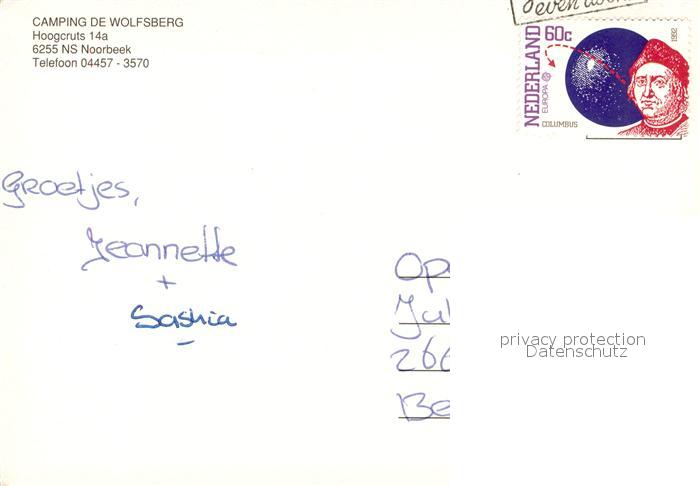 CAMPING DE WOLFSBERG
Hoogcruts 14a
6255 NS Noorbeek
Telefoon 04457 - 3570
even
NEDERLAND
60c
EUROPA
COLUMBUS
1992
Groetjes,
Jeannette
+
Saskia
Op
Jul
266
Be
privacy protection
Datenschutz